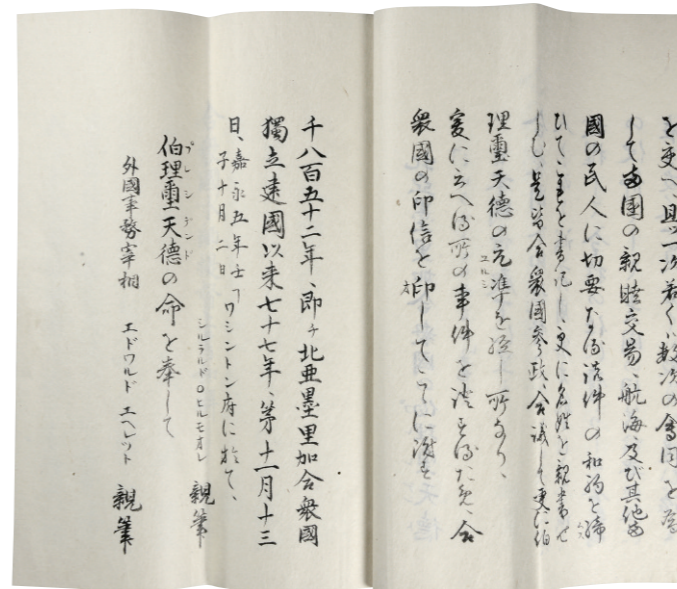 を交へ且一次若くハ数次の會同を為
して両国の親睦交易、航海及び其他両
國の民人に切要なる諸件の和約を締
ひてこれを書記し、更に名姓を親書せ
しむ、是皆合衆國参政、合議して更に伯
理璽天徳の允準を経し所なり、
ユルシ
爰に云へる所の事件を證するため、合
衆國の印信を印して
千八百五十二年、即チ北亜墨里加合衆國
獨立建國以来七十七年、第十一月十三
日、嘉永五年壬子十月二日 ワシントン府に於て、
シルラルドロヒルモオレ 親筆
プレシデンド
伯理璽天徳の命を奉して
外國事務宰相 エドワルド エヘレット 親筆